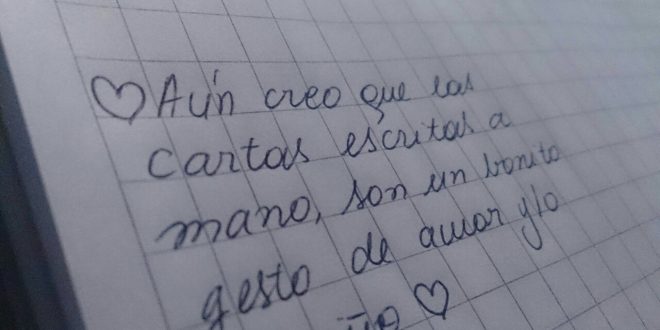 ♡ Aún creo que las
cartas escritas a
mano, son un bonito
gesto de amor y/o
♡